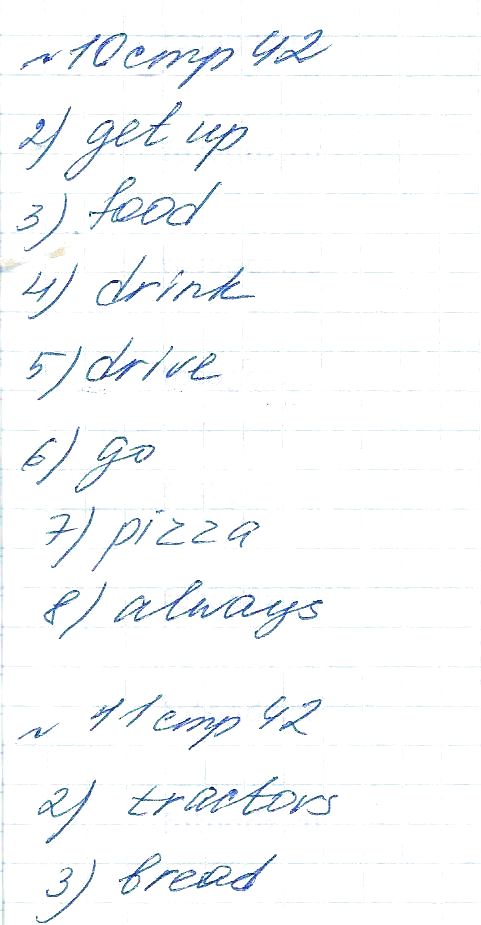 №10 стр 42
2) get up
3) food
4) drink
5) drive
6) go
7) pizza
8) always
№ 11 стр 42
2) tractors
3) bread